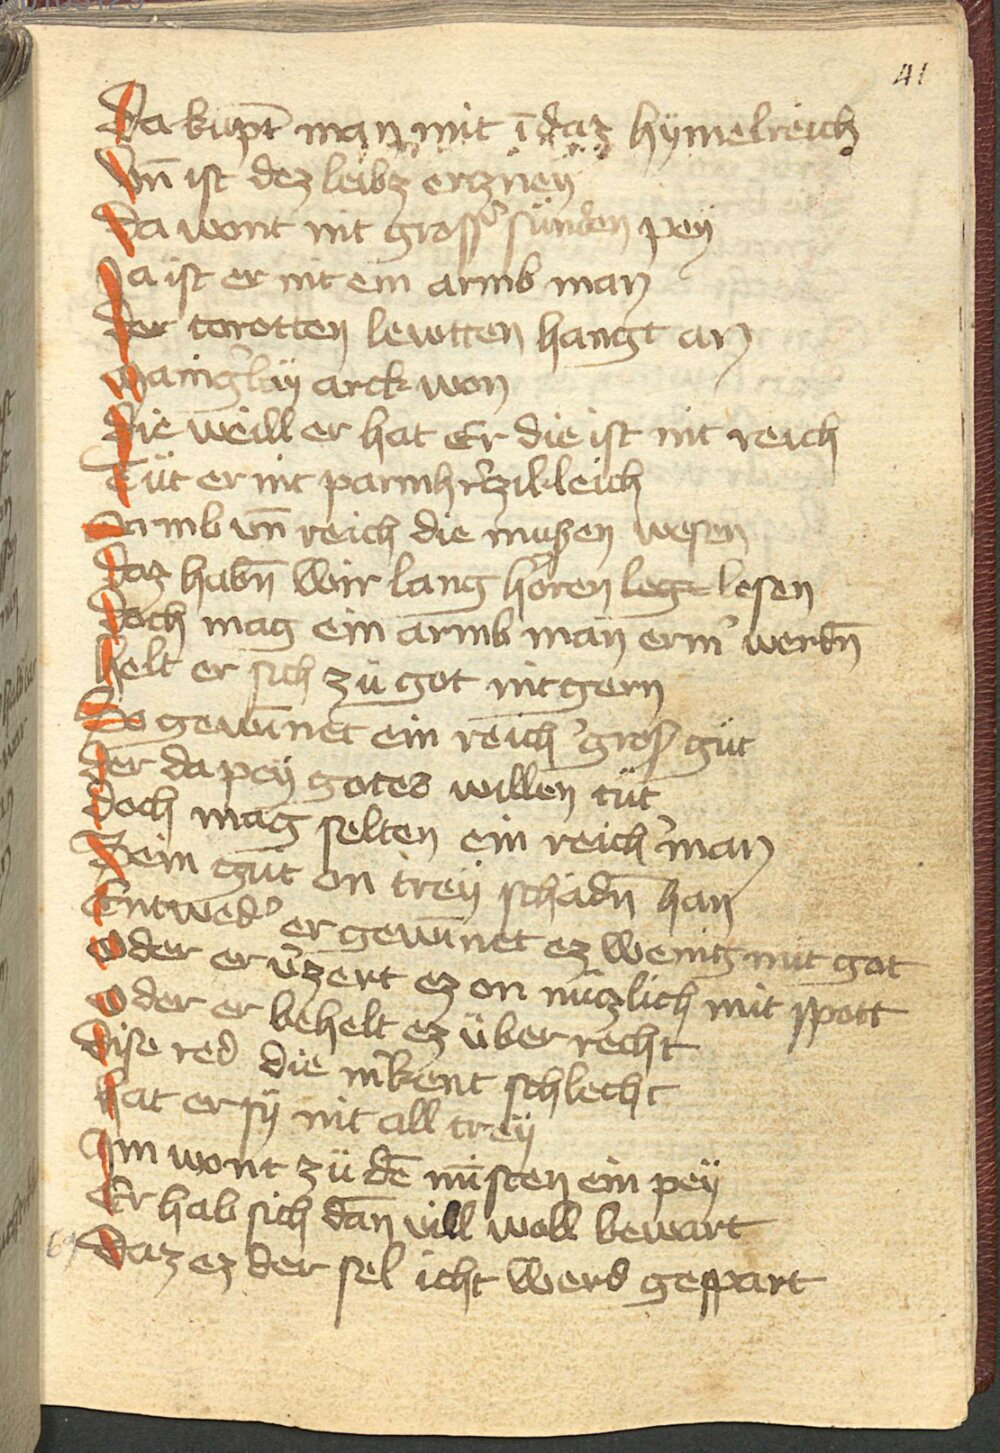 41
Da kupt man mit ī daz hÿmelreich
Vn̄ ist dez leibz erczneÿ
Da wont nit grossʼ sünden peÿ
Ja ist er nit ein armb man
Der torotten lewtten hangt an
Maingʼlaÿ arck won
Die weill er hat Er die ist nit reich
Tüt er nit parmhʼrczikleich
Armb vn̄ reich die mußen wesen
Daz habn̄ Wir lang hören leg lesen
Doch mag ein armb man ermʼ werdn̄
helt er sich zü got nit gern
So gewīnet ein reichʼ groß güt
Der da peÿ gotes willen tüt
Doch mag selten ein reichʼ man
Sein güt on treÿ schadn̄ han
Entwedʼ er gewīnet ez Wenig mit got
Oder er vʼzert ez on nüczlich mit spott
Oder er behelt ez über recht
Dise red die mʼkent schlecht
hat er sÿ nit all treÿ
Im wont zü dē mīsten ein peÿ
Er hab sich dan̄ vill woll bewart
Daz ez der sel icht Werd gespart